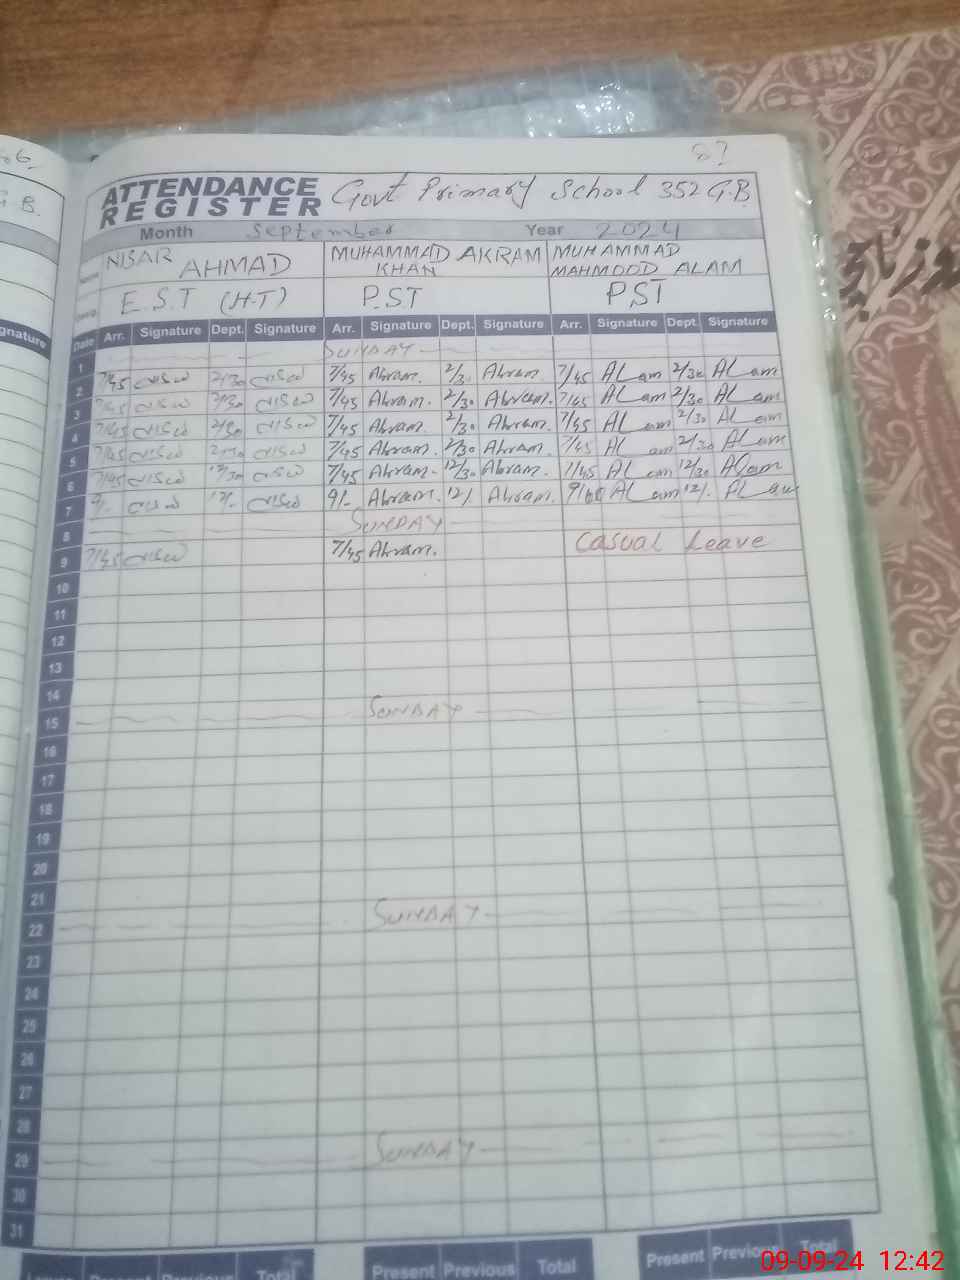 ATTENDANCE REGISTER Govt Primary School 352 G.B
Month September Year 2024
NISAR AHMAD MUHAMMAD AKRAM KHAN MUHAMMAD MAHMOOD ALAM
E.S.T (H.T) P.ST PST
Date Arr. Signature Dept. Signature Arr. Signature Dept. Signature Arr. Signature Dept. Signature
1 SUNDAY
2 7/45 2/30 7/45 Akram. 2/30 Akram. 7/45 ALam 2/30 ALam
3 7/45 2/30 7/45 Akram. 2/30 Akram. 7/45 ALam 2/30 ALam
4 7/45 2/30 7/45 Akram. 2/30 Akram. 7/45 ALam 2/30 ALam
5 7/45 2/30 7/45 Akram. 2/30 Akram. 7/45 ALam 2/30 ALam
6 7/45 12/30 7/45 Akram. 12/30 Akram. 7/45 ALam 12/30 ALam
7 9/- 12/- 9/- Akram. 12/ Akram. ALam 12/. ALam
8 SUNDAY
9 7/45 7/45 Akram. Casual Leave
10
11
12
13
14
15 SUNDAY
16
17
18
19
20
21
22 SUNDAY
23
24
25
26
27
28
29 SUNDAY
30
31
Present Previous Total Present Previous Total Present Previous Total
09-09-24 12:42